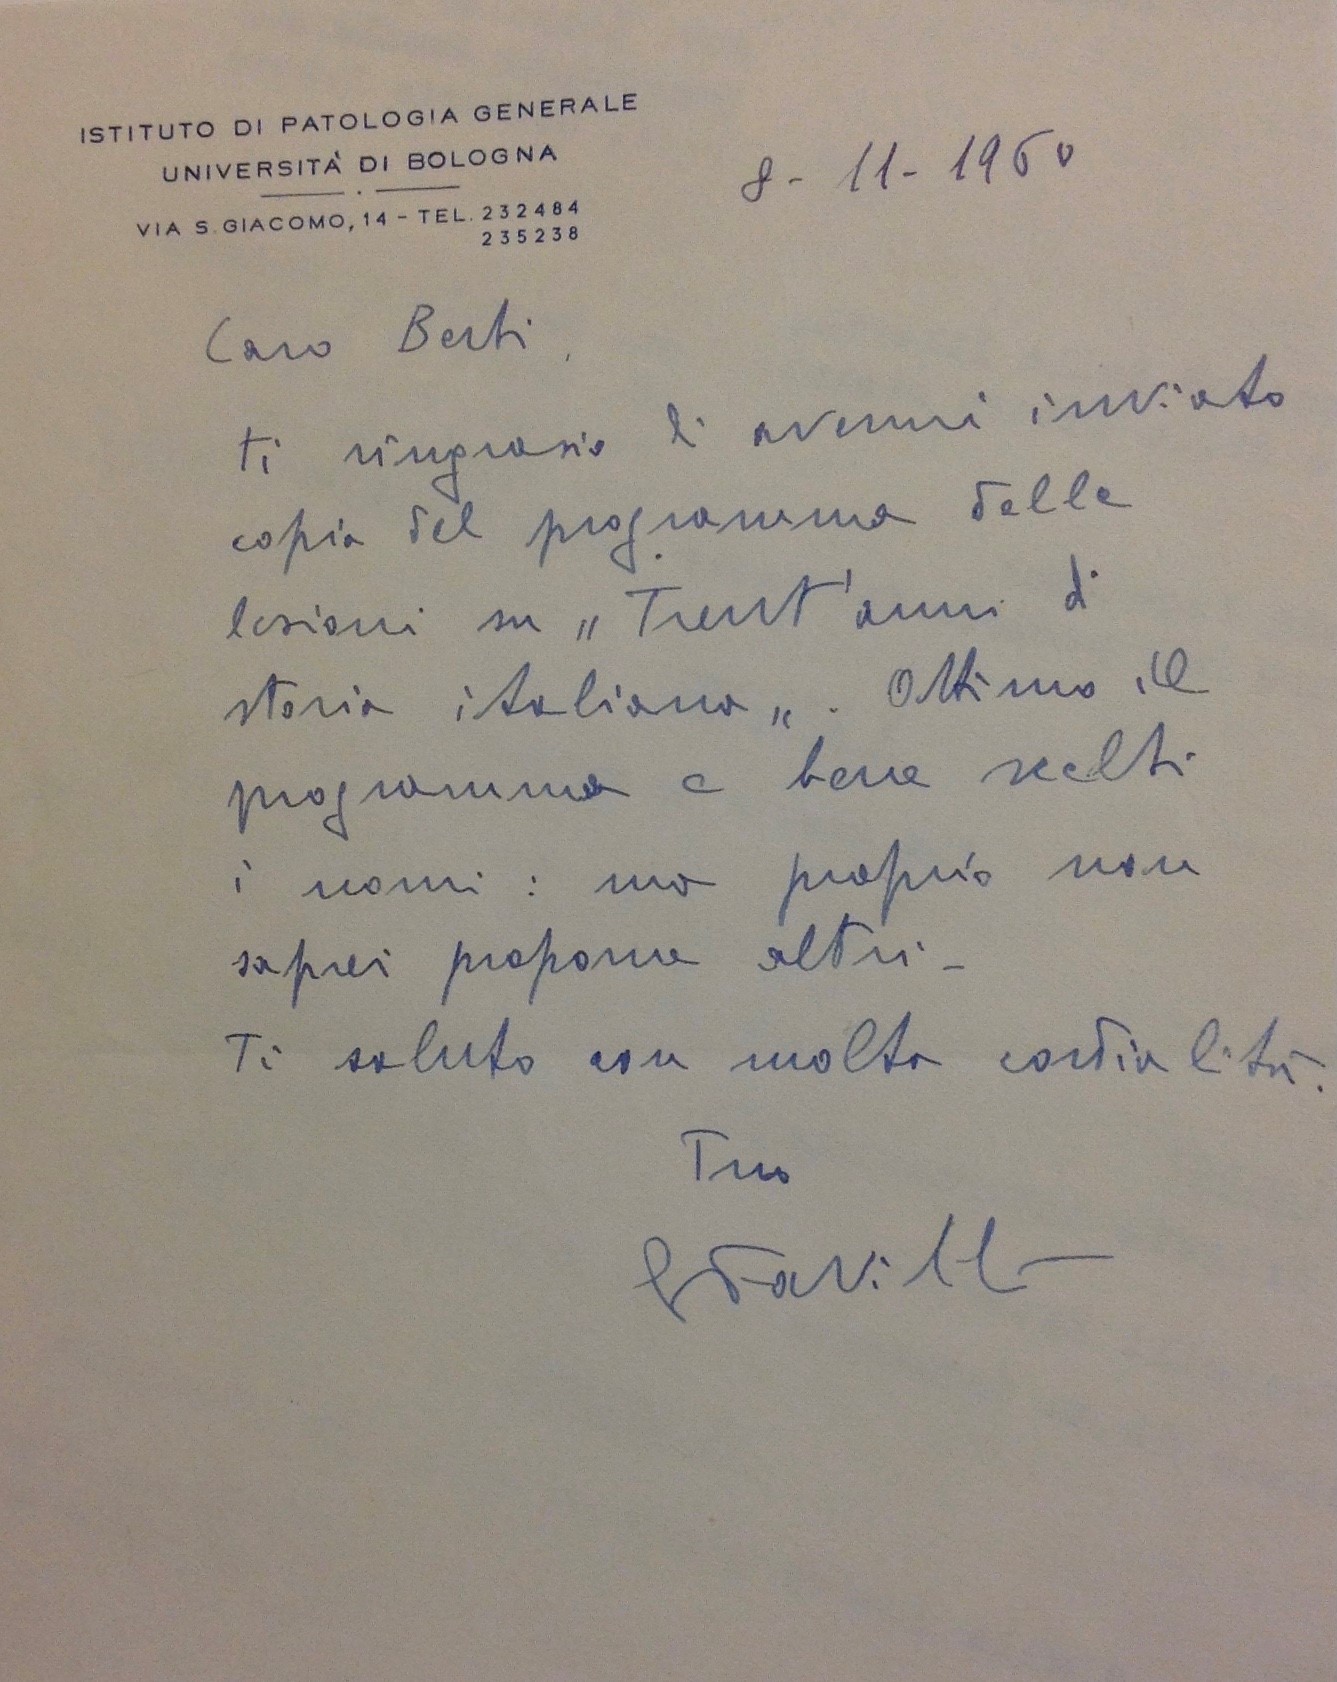 ISTITUTO DI PATOLOGIA GENERALE
UNIVERSITÀ DI BOLOGNA
VIA S. GIACOMO, 14 - TEL. 232484
235238
8 - 11 - 1960
Caro Berti,
ti ringrazio di avermi inviato
copia del programma delle
lezioni su "Trent'anni di
storia italiana". Ottimo il
programma e bene scelti
i nomi: ma proprio non
saprei proporne altri -
Ti saluto con molta cordialità.
Tuo
GFavilli